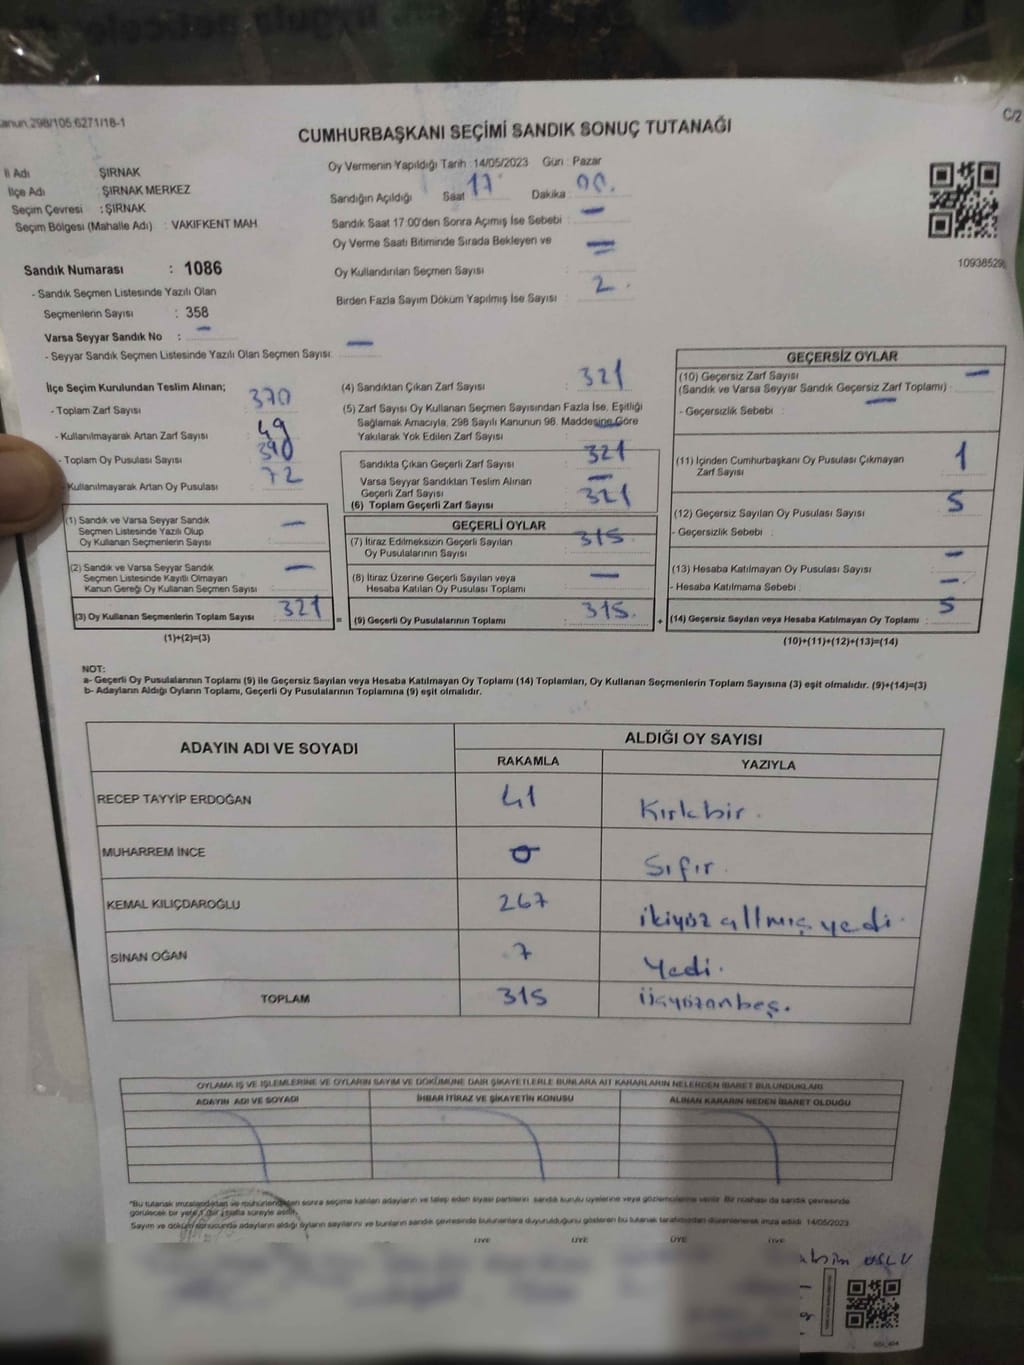 anun.298/105.6271/18-1
C/2
CUMHURBAŞKANI SEÇİMİ SANDIK SONUÇ TUTANAĞI
İl Adı ŞIRNAK
İlçe Adı : ŞIRNAK MERKEZ
Seçim Çevresi : ŞIRNAK
Seçim Bölgesi (Mahalle Adı) : VAKIFKENT MAH
Oy Vermenin Yapıldığı Tarih : 14/05/2023 Gün : Pazar
Sandığın Açıldığı Saat 17 Dakika 00
Sandık Saat 17:00'den Sonra Açımış İse Sebebi : —
Oy Verme Saati Bitiminde Sırada Bekleyen ve
Oy Kullandırılan Seçmen Sayısı : —
Birden Fazla Sayım Döküm Yapılmış İse Sayısı : 2
10938529
Sandık Numarası : 1086
- Sandık Seçmen Listesinde Yazılı Olan
Seçmenlerin Sayısı : 358
Varsa Seyyar Sandık No : —
- Seyyar Sandık Seçmen Listesinde Yazılı Olan Seçmen Sayısı: —
İlçe Seçim Kurulundan Teslim Alınan;
- Toplam Zarf Sayısı 370
- Kullanılmayarak Artan Zarf Sayısı 49
- Toplam Oy Pusulası Sayısı 390
- Kullanılmayarak Artan Oy Pusulası 72
(1) Sandık ve Varsa Seyyar Sandık
Seçmen Listesinde Yazılı Olup
Oy Kullanan Seçmenlerin Sayısı : —
(2) Sandık ve Varsa Seyyar Sandık
Seçmen Listesinde Kayıtlı Olmayan
Kanun Gereği Oy Kullanan Seçmen Sayısı : —
(3) Oy Kullanan Seçmenlerin Toplam Sayısı : 321
(1)+(2)=(3)
(4) Sandıktan Çıkan Zarf Sayısı : 321
(5) Zarf Sayısı Oy Kullanan Seçmen Sayısından Fazla İse, Eşitliği
Sağlamak Amacıyla, 298 Sayılı Kanunun 98. Maddesine Göre
Yakılarak Yok Edilen Zarf Sayısı : —
Sandıkta Çıkan Geçerli Zarf Sayısı : 321
Varsa Seyyar Sandıktan Teslim Alınan
Geçerli Zarf Sayısı : —
(6) Toplam Geçerli Zarf Sayısı : 321
GEÇERLİ OYLAR
(7) İtiraz Edilmeksizin Geçerli Sayılan
Oy Pusulalarının Sayısı : 315
(8) İtiraz Üzerine Geçerli Sayılan veya
Hesaba Katılan Oy Pusulası Toplamı : —
= (9) Geçerli Oy Pusulalarının Toplamı : 315
GEÇERSİZ OYLAR
(10) Geçersiz Zarf Sayısı —
(Sandık ve Varsa Seyyar Sandık Geçersiz Zarf Toplamı)
- Geçersizlik Sebebi : —
(11) İçinden Cumhurbaşkanı Oy Pusulası Çıkmayan
Zarf Sayısı 1
(12) Geçersiz Sayılan Oy Pusulası Sayısı 5
- Geçersizlik Sebebi :
(13) Hesaba Katılmayan Oy Pusulası Sayısı —
- Hesaba Katılmama Sebebi : —
+ (14) Geçersiz Sayılan veya Hesaba Katılmayan Oy Toplamı : 5
(10)+(11)+(12)+(13)=(14)
NOT:
a- Geçerli Oy Pusulalarının Toplamı (9) ile Geçersiz Sayılan veya Hesaba Katılmayan Oy Toplamı (14) Toplamları, Oy Kullanan Seçmenlerin Toplam Sayısına (3) eşit olmalıdır. (9)+(14)=(3)
b- Adayların Aldığı Oyların Toplamı, Geçerli Oy Pusulalarının Toplamına (9) eşit olmalıdır.
ADAYIN ADI VE SOYADI ALDIĞI OY SAYISI
RAKAMLA YAZIYLA
RECEP TAYYİP ERDOĞAN 41 Kırkbir.
MUHARREM İNCE 0 Sıfır
KEMAL KILIÇDAROĞLU 267 ikiyüz altmış yedi.
SİNAN OĞAN 7 Yedi.
TOPLAM 315 üçyüzonbeş.
OYLAMA İŞ VE İŞLEMLERİNE VE OYLARIN SAYIM VE DÖKÜMÜNE DAİR ŞİKAYETLERLE BUNLARA AİT KARARLARIN NELERDEN İBARET BULUNDUKLARI
ADAYIN ADI VE SOYADI İHBAR İTİRAZ VE ŞİKAYETİN KONUSU ALINAN KARARIN NEDEN İBARET OLDUĞU
*Bu tutanak imzalandıktan ve mühürlendikten sonra seçime katılan adayların ve talep eden siyasi partilerin sandık kurulu üyelerine veya gözlemcilerine verilir. Bir nüshası da sandık çevresinde
görülecek bir yere 1 (bir) hafta süreyle asılır.
Sayım ve döküm sonucunda adayların aldığı oyların sayılarını ve bunların sandık çevresinde bulunanlara duyurulduğunu gösteren bu tutanak tarafımızdan düzenlenerek imza edildi. 14/05/2023
ÜYE ÜYE ÜYE ÜYE